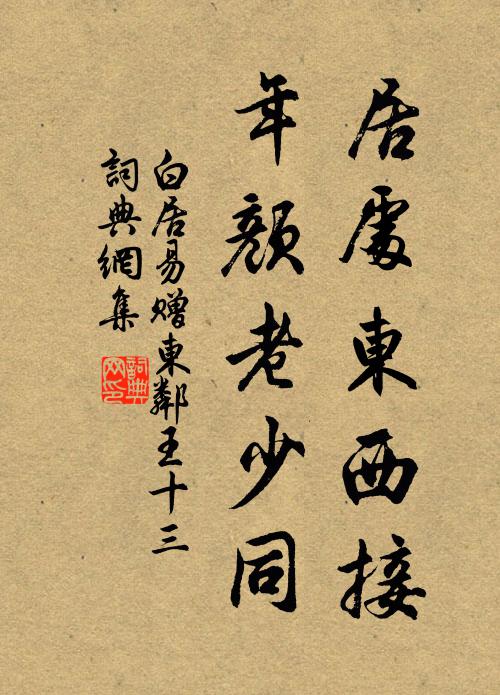 居處東西接
年顏老少同
白居易贈東鄰王十三
詞典網集
詞典
网印